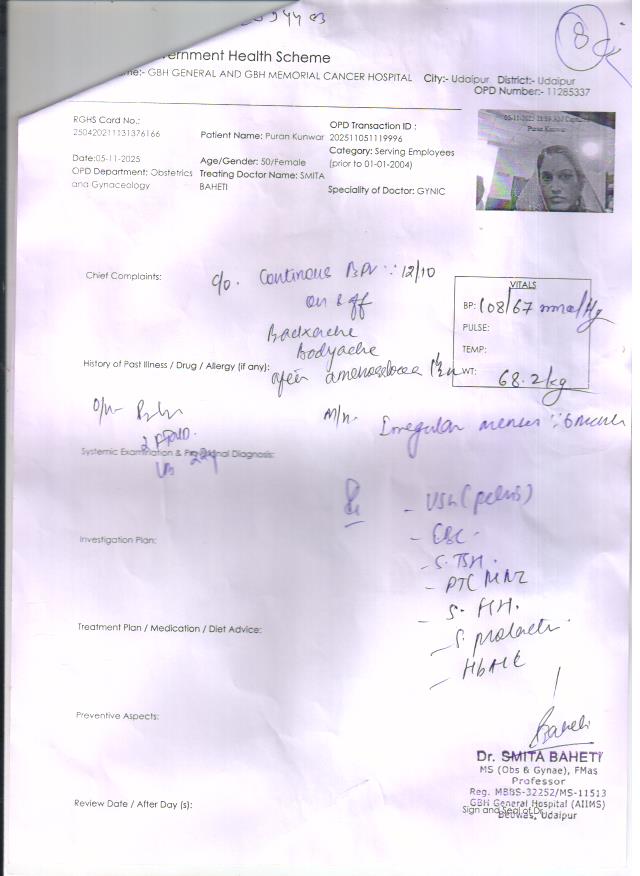 44 03
8
ernment Health Scheme
me:- GBH GENERAL AND GBH MEMORIAL CANCER HOSPITAL City:- Udaipur District:- Udaipur
OPD Number:- 11285337
RGHS Card No.:
250420211131376166
Patient Name: Puran Kunwar
OPD Transaction ID :
202511051119996
Category: Serving Employees
(prior to 01-01-2004)
Date:05-11-2025
OPD Department: Obstetrics
and Gynaceology
Age/Gender: 50/Female
Treating Doctor Name: SMITA
BAHETI
Speciality of Doctor: GYNIC
Puran Kunwar
Chief Complaints:
c/o. Continous BPV ∵ 12/10
on & off
Backache
Bodyache
VITALS
BP: 108/67 mmol/Hg
PULSE:
TEMP:
WT: 68.2kg
History of Past Illness / Drug / Allergy (if any):
after
O/H-
M/H. Irregular menses ∵ 6
Systemic Examination & Provisional Diagnosis:
- USG (pelvis)
- CBC
- S. TSH.
Investigation Plan:
- PTC
- S.
Treatment Plan / Medication / Diet Advice:
- S. prolactin
- HbA1C
Preventive Aspects:
Baheti
Dr. SMITA BAHETI
MS (Obs & Gynae), FMas
Professor
Reg. MBBS-32252/MS-11513
GBH General Hospital (AIIMS)
Sign and Seal of Dr.
Bedwas, Udaipur
Review Date / After Day (s):